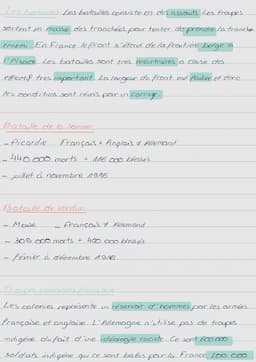 Les batailles Les batailles consiste en des assauts. Les troupes
sortent en masse des tranchées pour tenter de prendre la tranchée
ennemi. En France le front s'étend de la frontière belge à
l'Alsace. Les batailles sont très meurtrières à cause des
effectif très important. La largeur du front est faible et donc
les conditions sont réunis pour un carnage.
Bataille de la Somme:
- Picardie Français + Anglais ≠ Allemand
- 440 000 morts + 116 000 blessés
- juillet à novembre 1916
Bataille de Verdun:
- Meuse - Français ≠ Allemand
- 305 000 morts + 400 000 blessés
- février à décembre 1916
Troupes coloniales françaises
Les colonies représente un réservoir d'hommes pour les armées
Française et anglaise. L'Allemagne n'utilise pas de troupes
indigène du fait d'une idéologie raciste. Ce sont 600 000
soldats indigène qui se sont battus pour la France, 200 000